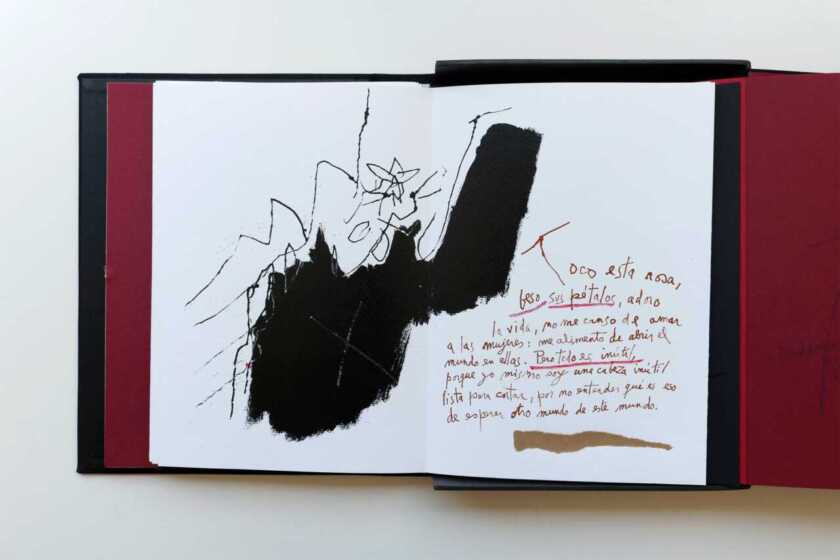 Toco esta rosa,
beso sus pétalos, adoro
la vida, no me canso de amar
a las mujeres: me alimento de abrir el
mundo en ellas. Pero todo es inútil,
porque yo mismo soy una cabeza inútil
lista para cortar, por no entender qué es eso
de esperar otro mundo de este mundo.